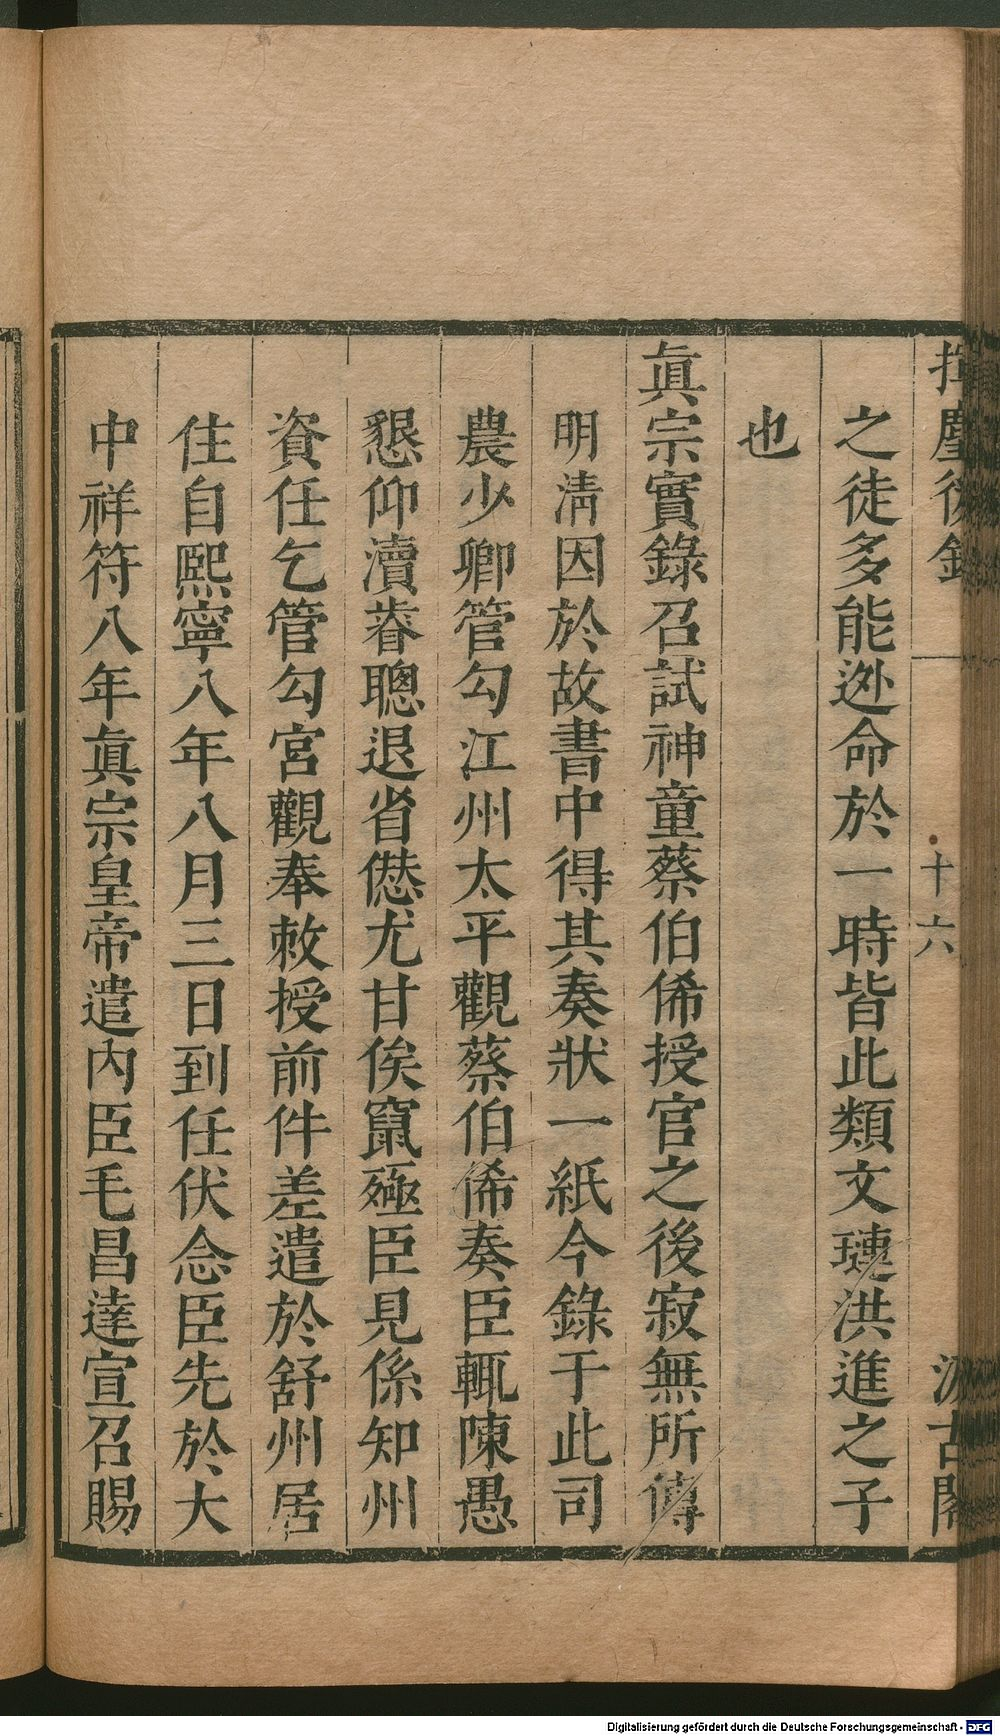 揮麈後錄
十六
汲古閣
之徒多能迯命於一時皆此類文璉洪進之子
也
眞宗實錄召試神童蔡伯俙授官之後寂無所傳
明淸因於故書中得其奏狀一紙今錄于此司
農少卿管勾江州太平觀蔡伯俙奏臣輒陳愚
懇仰瀆睿聰退省愆尤甘俟竄殛臣見係知州
資任乞管勾宮觀奉敕授前件差遣於舒州居
住自熙寧八年八月三日到任伏念臣先於大
中祥符八年眞宗皇帝遣內臣毛昌達宣召賜
Digitalisierung gefördert durch die Deutsche Forschungsgemeinschaft - DFG